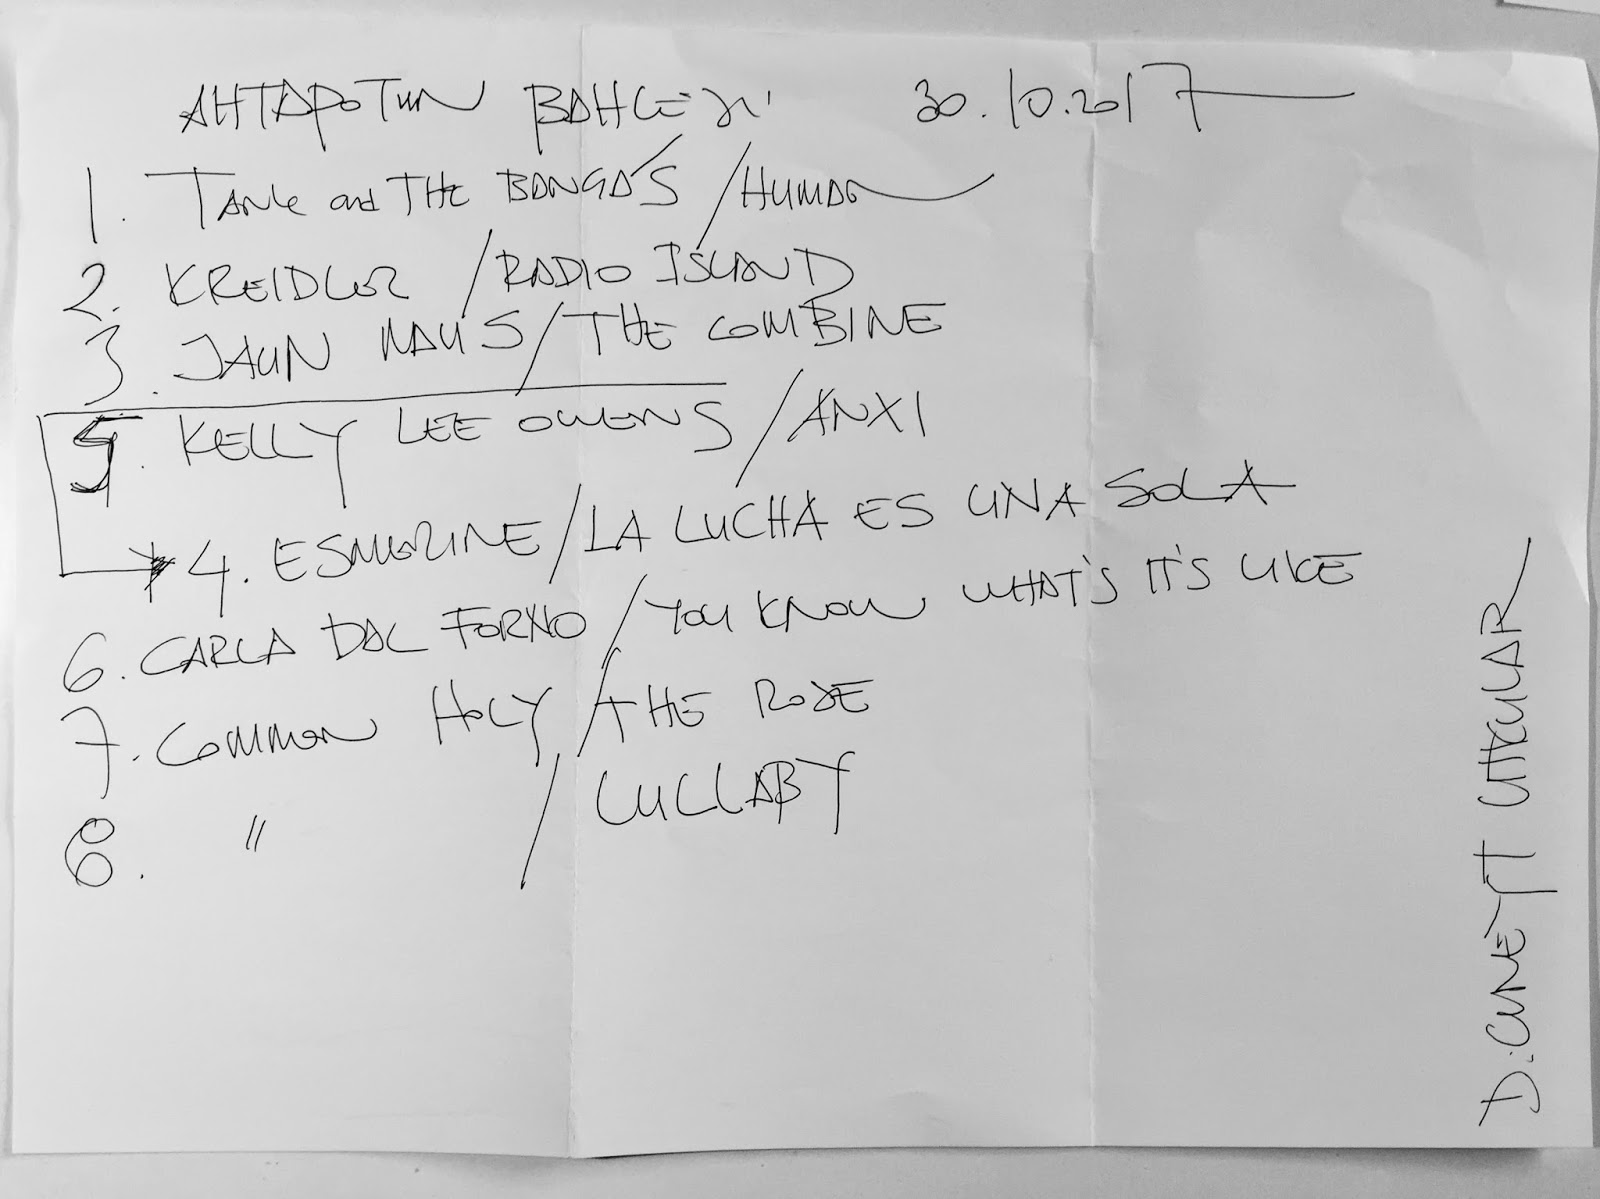 AHTAPOTUN BAHÇESİ 30.10.2017
1. TANK and THE BANGAS / HUMAN
2. KREIDLER / RADIO ISLAND
3. JAUN / THE COMBINE
5. KELLY LEE OWENS / ANXI
4. ESMERINE / LA LUCHA ES UNA SOLA
6. CARLA DAL FORNO / YOU KNOW WHAT'S IT'S LIKE
7. COMMON HOLY / THE ROSE
8. " / LULLABY
D: CÜNEYT UTKULAR